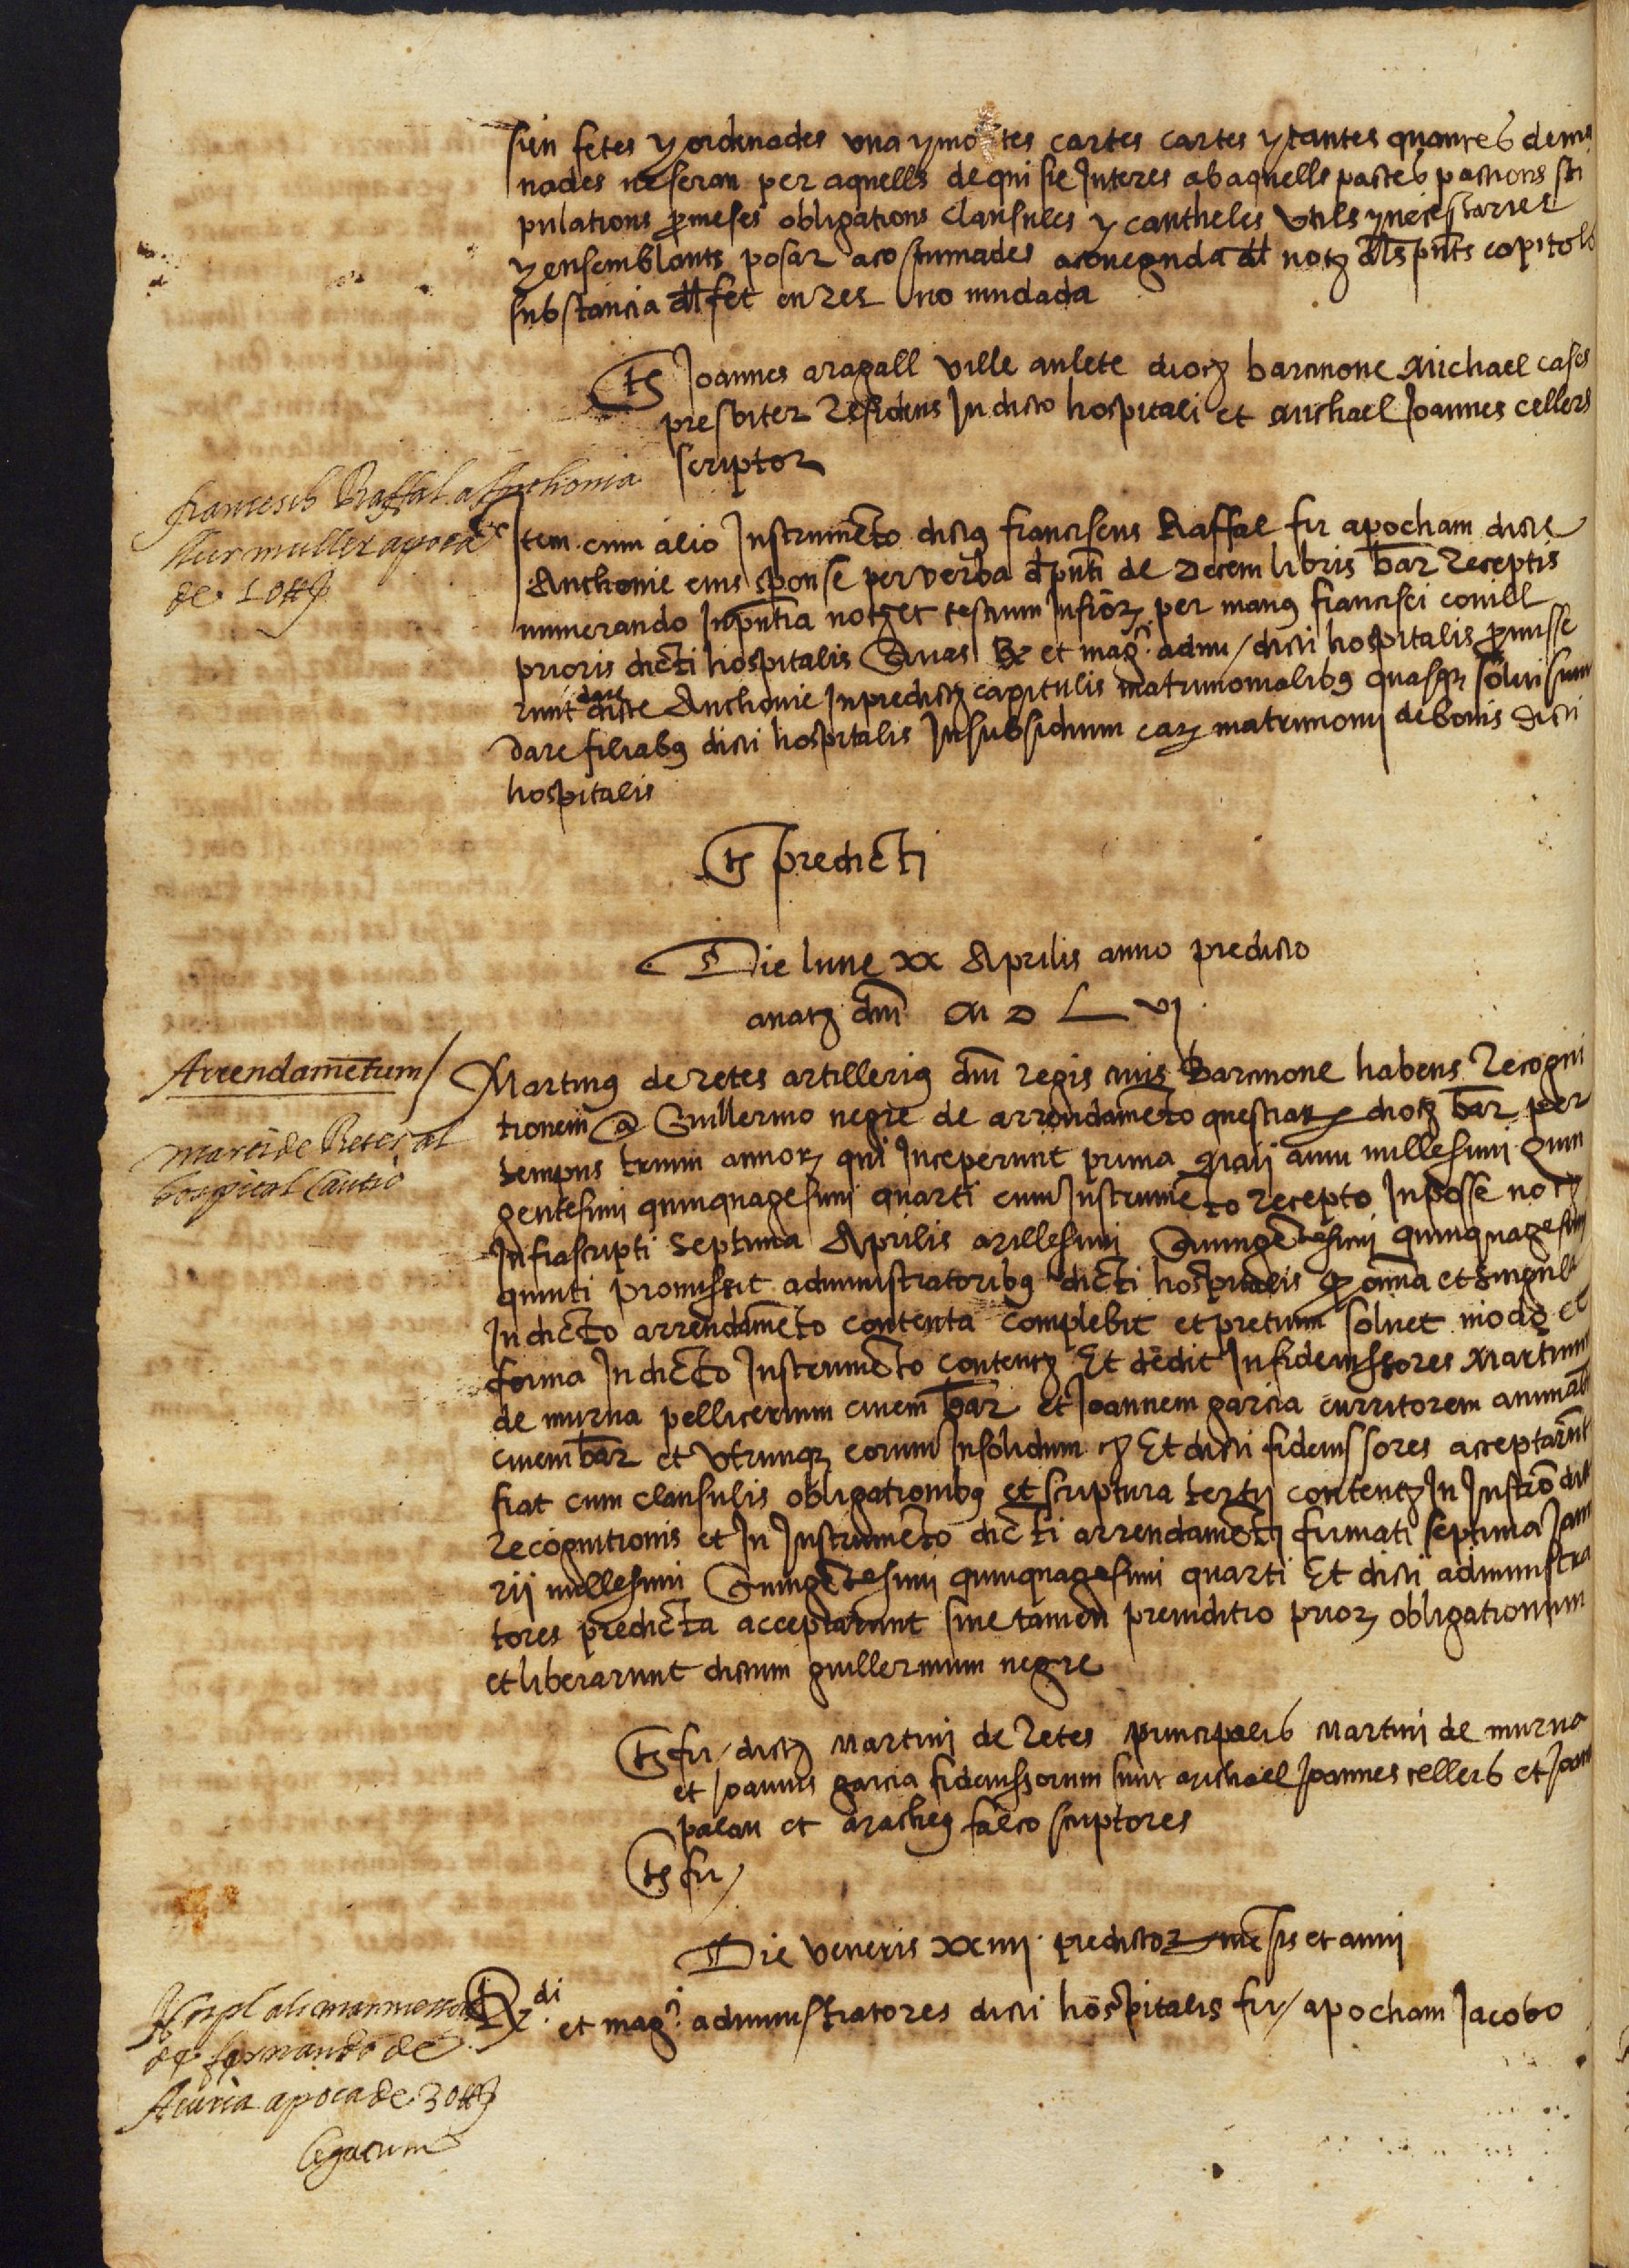 sien fetes y ordenades una y moltes cartes cartes y tantes quantes dema
nades ne seran per aquells de qui sie Interes ab aquells pactes pactions sti
pulations ꝓmeses obligations clausules y cautheles utils y necessaries
y ensemblants posar acostumades a coneguda dl notȝ dls pnts capitols
substancia dl fet en res no mudada
ts Joannes aragall ville aulete diocȝ barcinone Michael cases
presbiter Residens In dicto hospitali et Michael Joannes cellers
scriptor
francesch Raffal a Anthonia
sa muller apoca
de 10 ℔
Item cum alio Instrumẽto dictꝯ franciscus Raffal fir apocham dicte
Anthonie eius sponse per verba d pnti de decem libris bar Receptis
numerando In pntia notȝ et testium Infrõꝝ per manꝯ francisci conill
prioris dicti hospitalis Quas Rx et magci admi/ dicti hospitalis ꝓmisse
runt dare dicte Anthonie In predictȝ capitulis matrimonialibꝯ quasqꝫ solui sunt
dare filiabꝯ dicti hospitalis In subsidium eaꝝ matrimonij de bonis dicti
hospitalis
ts predicti
Die lune xx Aprilis anno predicto
anatȝ dni M D L vj
Arrendametum/
Marti de Retes al
hospital Cautio
Martinꝯ de retes artilleriꝯ dni regis civis Barcinone habens Recogni
tionem a Guillermo negre de arrendamẽto questiaꝝ diocȝ bar per
tempus trium annoꝝ qui Inceperunt prima Maij anni millesimi quin
gentesimi quinquagesimi quarti cum Instrumẽto recepto In posse notȝ
Infrascripti septima Aprilis Millesimi Quingẽtesimi quinquagesimi
quinti promissit administratoribꝯ dicti hospitalis ꝙ omnia et singula
In dicto arrendamẽto contenta complebit et pretium soluet modo et
forma In dicto Instrumẽto contentȝ Et dedit In fideiussores Martinum
de murua pellicerium civem bar et Joannem garcia curritorem animal
civem bar et utrunqꝫ eorum Insolidum ȝ Et dicti fideiussores acceptarunt
fiat cum clausulis obligationibꝯ et scriptura tertij contentȝ In Instrõ dicte
recognitionis et In Instrumẽto dicti arrendamẽti firmati septima Janua
rij millesimi Quingẽtesimi quinquagesimi quarti Et dicti administra
tores predicta acceptarunt sine tamen preiuditio prioꝝ obligationum
et liberarunt dictum guillermum negre
ts fir/ dictȝ Martini de Retes principalis Martini de murua
et Joannis garcia fideiussorum sunt Michael Joannes cellers et Joannes
palau et Matheꝯ falco scriptores
ts fir/
Die veneris xxiiij predictoꝝ mẽsis et anni
Hospl als marmessors
de fernando de
apoca de 30 ℔
legatum
Rx di et magci administratores dicti hospitalis fir/ apocham Jacobo